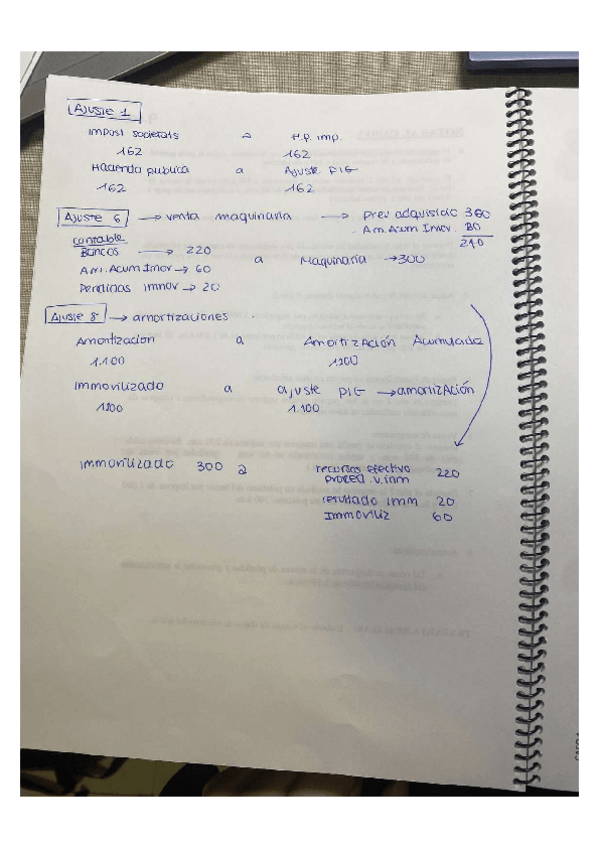 Ajuste 1
Impost societats a H.P. imp.
162 162
Hacienda publica a Ajuste PiG
162 162
Ajuste 6 → venta maquinaria → prev adquisidc 300
Am. Acum Inov. 80
210
contable
Bancos → 220
a Maquinaria → 300
Am. Acum Inov → 60
Perdidas immov → 20
Ajuste 8 → amortizaciones
Amortizacion a Amortización Acumulada
1.100 1100
Immovilizado a ajuste PiG → amortización
1100 1.100
Immovilizado 300 a recursos efectivo 220
proced. v. inm
resultado imm 20
Immoviliz 60